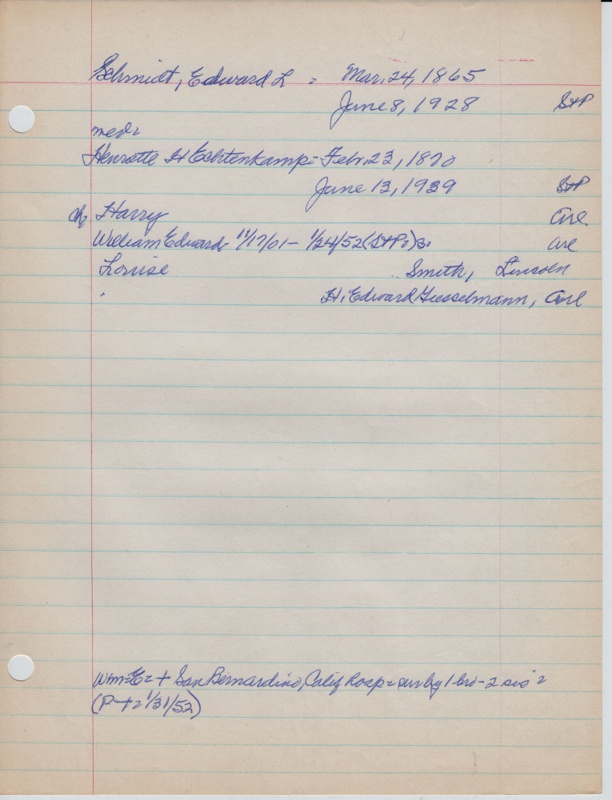 Schmidt, Edward L = Mar. 24, 1865
June 8, 1928 S+P
med:
Henrette H Echtenkamp = Febr. 23, 1870
June 13, 1939 S+P
ch Harry Arl
William Edward 11/17/01 - 1/24/52 (S+P) Arl
Louise Smith, Lincoln
H. Edward Giesselmann, Arl
Wm E = + San Bernardino, Calif hosp = sur by 1 bro - 2 sis =
(P + 2 1/31/52)